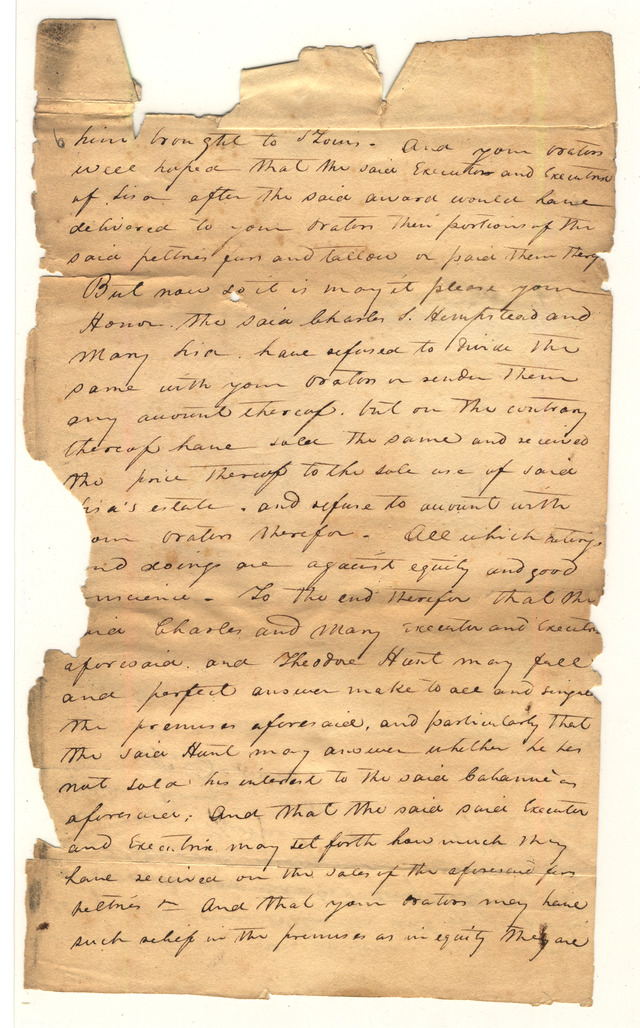 him brought to St Louis - And your orators
well hoped that the said Executor and Executrix
of Lisa after the said award would have
delivered to your orators their portions of the
said peltries furs and tallow or paid them
But now so it is may it please your
Honor. the said Charles S. Hempstead and
Mary Lisa. have refused to divide the
same with your orators or render them
any account thereof. but on the contrary
thereof have sold the same and received
the price thereof to the sole use of said
Lisa's estate. and refuse to account with
your orators therefor - All which
and doings are against equity and good
conscience - To the end therefor that the
said Charles and Mary Executor and Executrix
aforesaid. and Theodore Hunt may full
and perfect answer make to all and singular
the premises aforesaid, and particularly that
the said Hunt may answer whether he has
not sold his interest to the said Cabanné as
aforesaid; And that the said said Executor
and Executrix may set forth how much they
have received on the sales of the aforesaid furs
peltries &c And that your orators may have
such relief in the premises as in equity they are